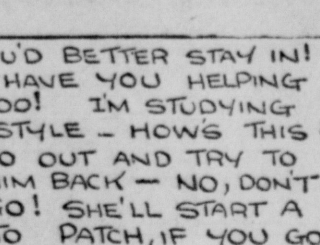 U'D BETTER STAY IN!
HAVE YOU HELPING
OO! I'M STUDYING
STYLE - HOW'S THIS
O OUT AND TRY TO
IM BACK - NO, DON'T
GO! SHE'LL START A
TO PATCH, IF YOU GO